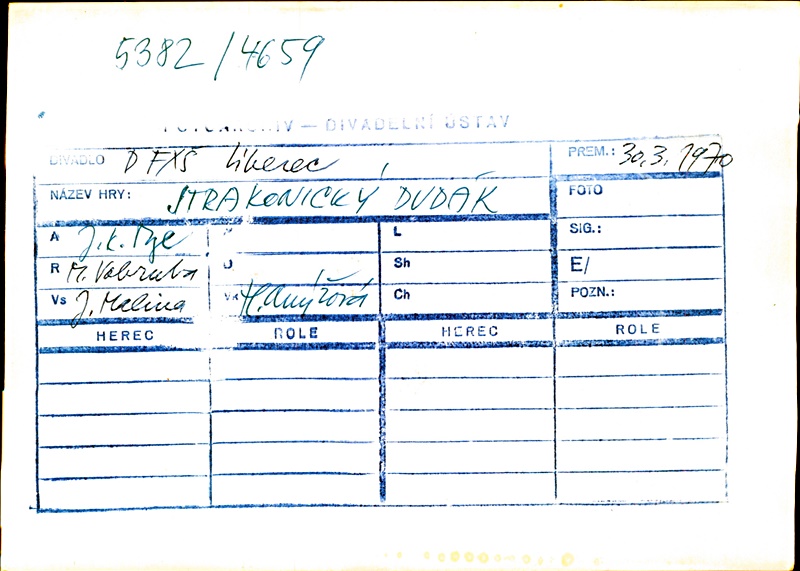 5382/4659
FOTOARCHIV — DIVADELNÍ ÚSTAV
DIVADLO D FXŠ Liberec PREM.: 30.3.1970
NÁZEV HRY: STRAKONICKÝ DUDÁK FOTO
A J.K. Tyl L SIG.:
R M. Vobruba Sh E/
Vs J. Malina Ch POZN.:
HEREC ROLE HEREC ROLE